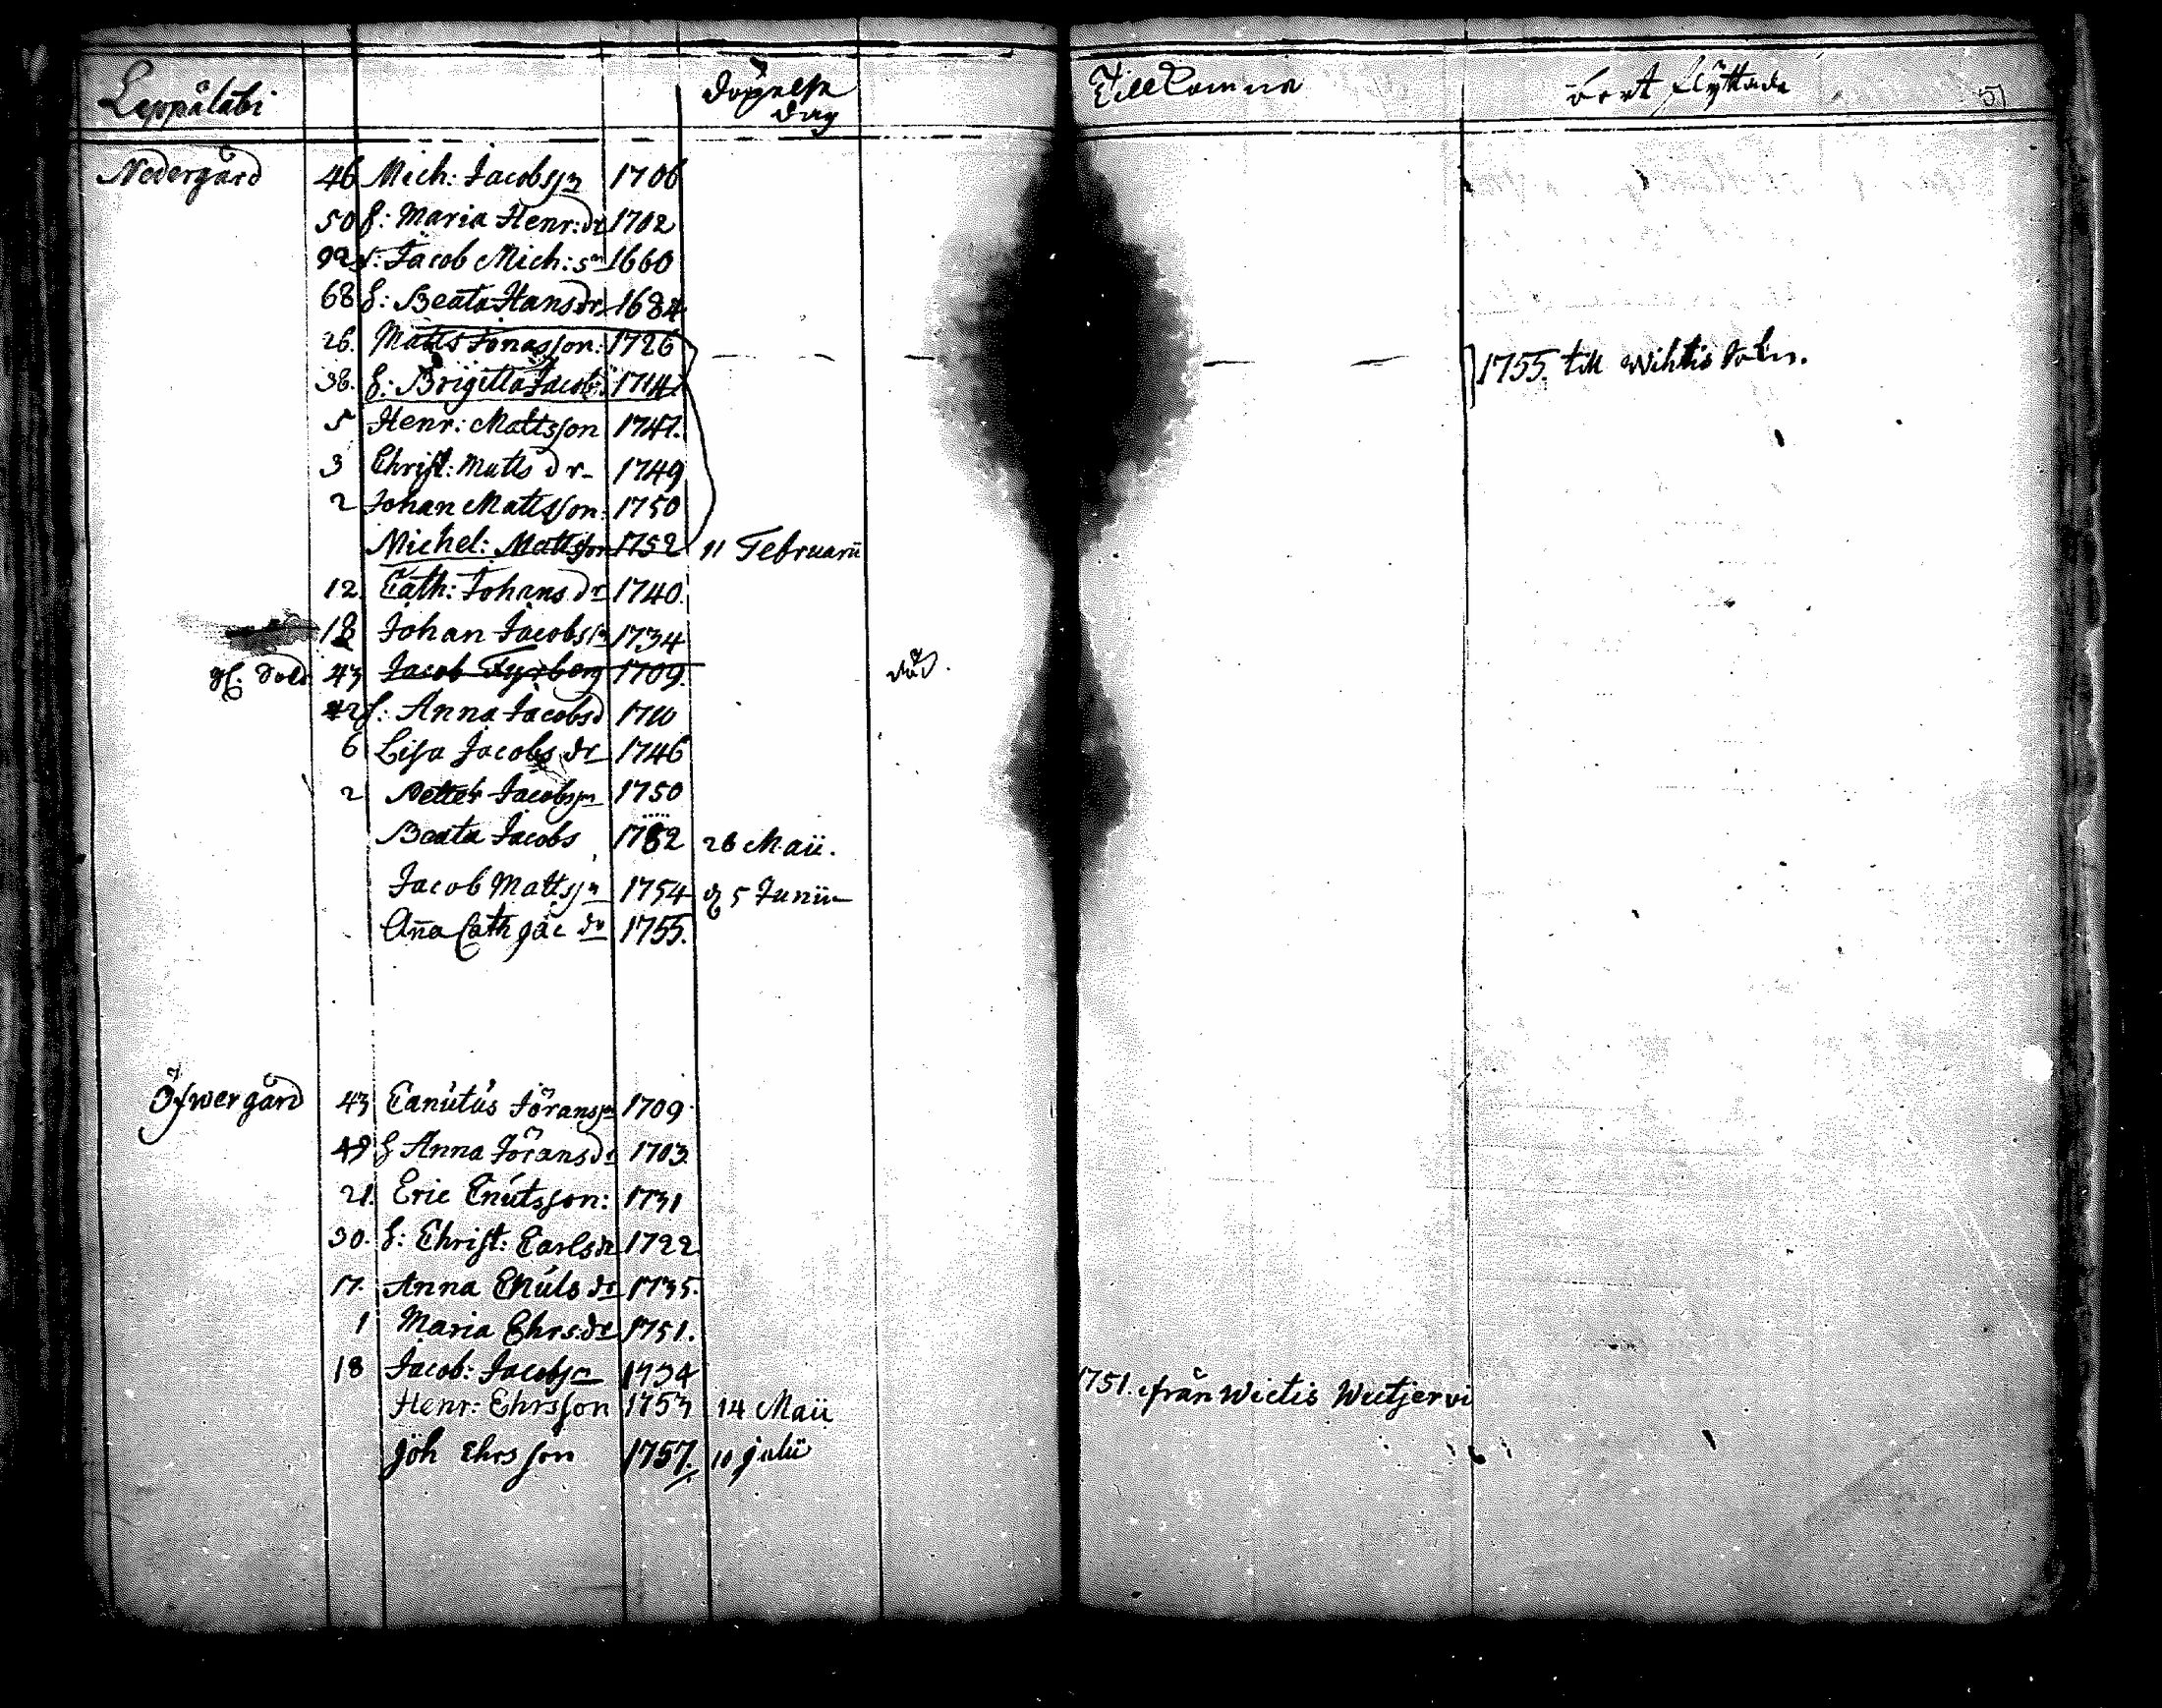 Leppälabi döpelse dag Tillkomne bort flyttade 51
Nedergård 46 Mich: Jacobsson 1706
50 h: Maria Henr: dr 1702
92 s: Jacob Mich: sn 1660
68 h: Beata Hans dr 1684
26. Matts Jonasson: 1726 1755. till Wihtis Sokn.
38. h: Brigitta Jacob: 1714
5 Henr: Mattsson 1747.
3 Christ: Matts dr 1749
2 Johan Mattsson: 1750
Michel: Mattsson 1752 11 Februarii
12. Cath: Johans dr 1740.
18 Johan Jacobsson 1734
Sold 43 Jacob Fyrberg 1709. död.
42 h: Anna Jacobsd 1710
6 Lisa Jacobs dr 1746
2 Petter Jacobsson 1750
Beata Jacobs 1752 28 Maii.
Jacob Mattsson 1754 d 5 Junii
Aña Cath Jac dr 1755.
Öfwergård 43 Canutus Göransson 1709.
49 h Anna Görans dr 1703.
21. Eric Cnutsson: 1731
30. h: Christ: Carls dr 1722
17. Anna Cnuts dr 1735.
1 Maria Ehrs: dr 1751.
18 Jacob: Jacobsson 1734 1751. ifrån Wictis
Henr: Ehrsson 1753 14 Maii
Joh Ehrsson 1757. 10 Julii